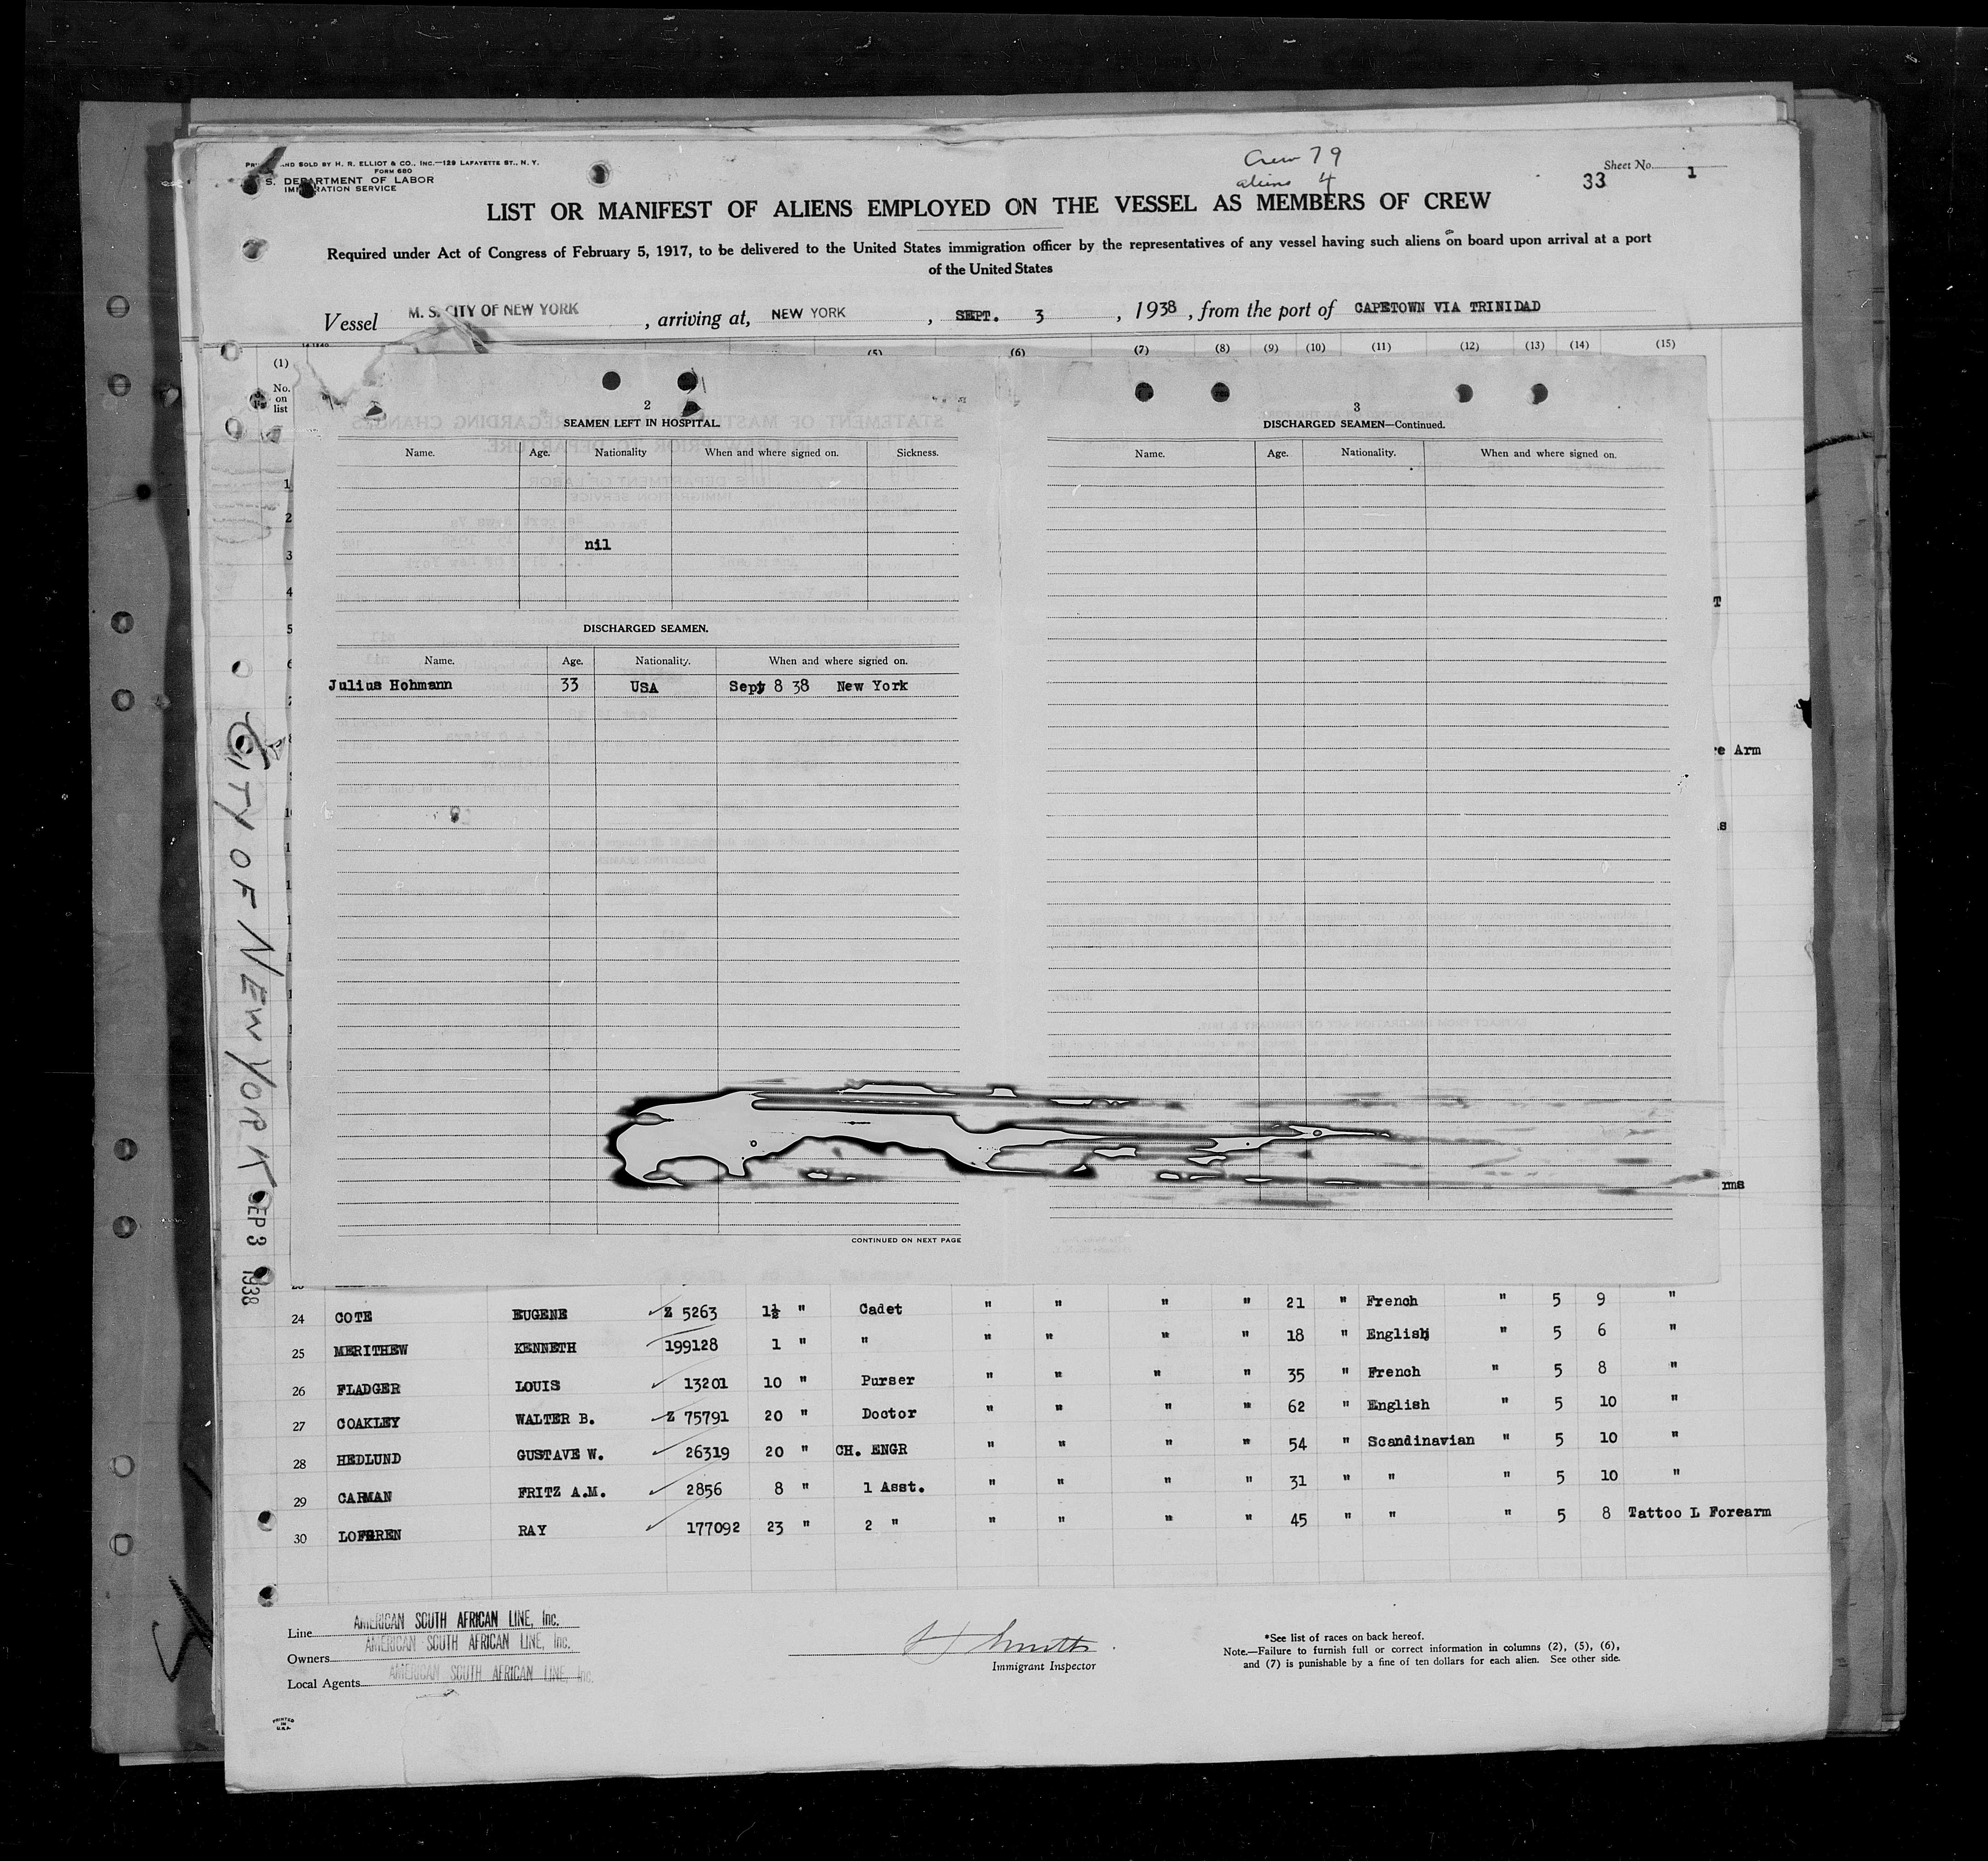 AND SOLD BY H. R. ELLIOT & CO., INC.—129 LAFAYETTE ST., N. Y.
FORM 680
S. DEPARTMENT OF LABOR
IMMIGRATION SERVICE
Crew 79
aliens 4
Sheet No. 1
33
LIST OR MANIFEST OF ALIENS EMPLOYED ON THE VESSEL AS MEMBERS OF CREW
Required under Act of Congress of February 5, 1917, to be delivered to the United States immigration officer by the representatives of any vessel having such aliens on board upon arrival at a port
of the United States
Vessel M. S. CITY OF NEW YORK, arriving at, NEW YORK, SEPT. 3, 1938, from the port of CAPETOWN VIA TRINIDAD
(1) (5) (6) (7) (8) (9) (10) (11) (12) (13) (14) (15)
No. on list
2
SEAMEN LEFT IN HOSPITAL.
Name. Age. Nationality When and where signed on. Sickness.
nil
DISCHARGED SEAMEN.
Name. Age. Nationality. When and where signed on.
Julius Hohmann 33 USA Sept 8 38 New York
CONTINUED ON NEXT PAGE
3
DISCHARGED SEAMEN—Continued.
Name. Age. Nationality. When and where signed on.
1
2
3
4
5
T
re Arm
rms
CITY OF NEW YORK
SEP 3 1938
24 COTE EUGENE Z 5263 1½ " Cadet " " " " 21 " French " 5 9 "
25 MERITHEW KENNETH 199128 1 " " " " " " 18 " English " 5 6 "
26 FLADGER LOUIS 13201 10 " Purser " " " " 35 " French " 5 8 "
27 COAKLEY WALTER B. Z 75791 20 " Doctor " " " " 62 " English " 5 10 "
28 HEDLUND GUSTAVE W. 26319 20 " CH. ENGR " " " " 54 " Scandinavian " 5 10 "
29 CARMAN FRITZ A.M. 2856 8 " 1 Asst. " " " " 31 " " " 5 10 "
30 LOFGREN RAY 177092 23 " 2 " " " " " 45 " " " 5 8 Tattoo L Forearm
Line AMERICAN SOUTH AFRICAN LINE, Inc.
Owners AMERICAN SOUTH AFRICAN LINE, Inc.
Local Agents AMERICAN SOUTH AFRICAN LINE, Inc.
Immigrant Inspector
*See list of races on back hereof.
Note.—Failure to furnish full or correct information in columns (2), (5), (6),
and (7) is punishable by a fine of ten dollars for each alien. See other side.
PRINTED
IN
U.S.A.